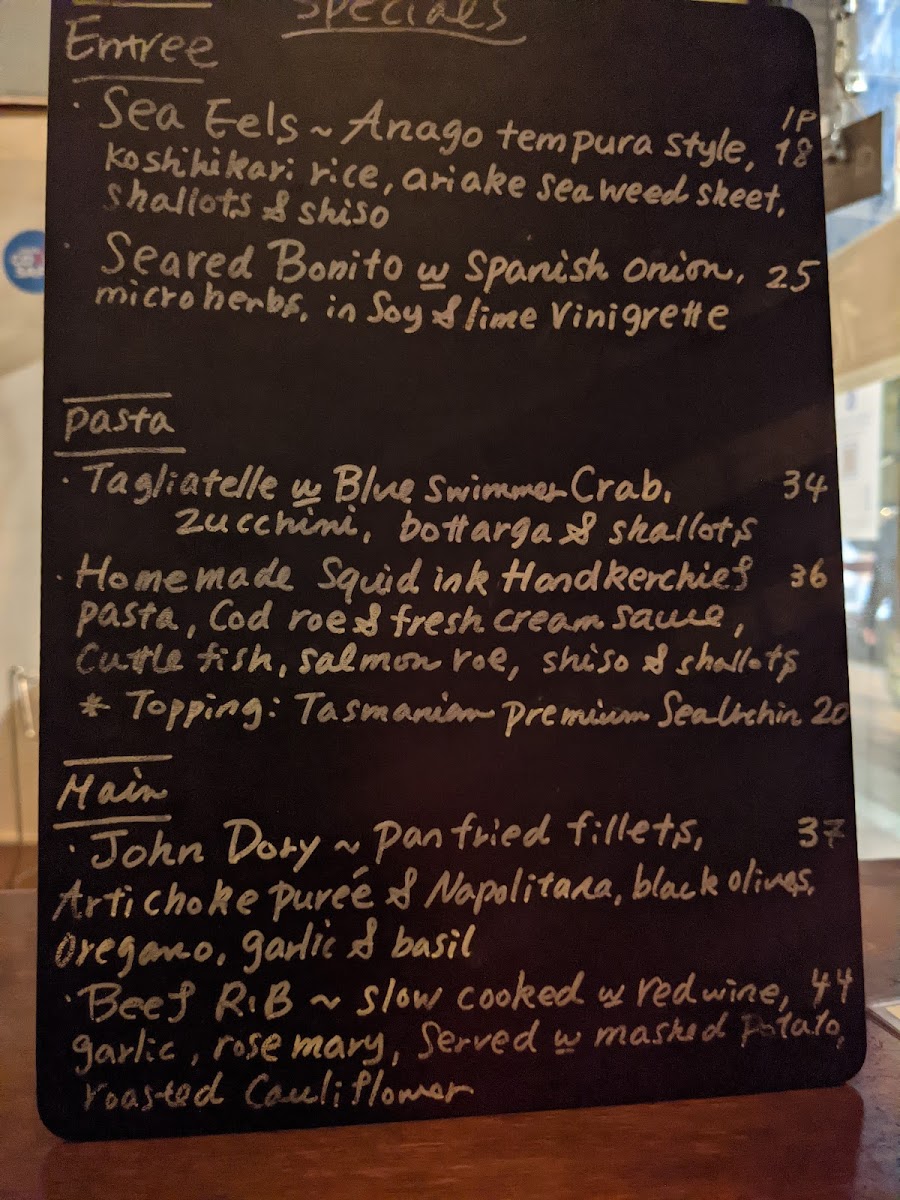 Specials
Entree
· Sea Eels ~ Anago tempura style, 1P 18
Koshihikari rice, ariake seaweed sheet,
shallots & shiso
· Seared Bonito w Spanish onion, 25
microherbs, in Soy & lime Vinigrette
Pasta
· Tagliatelle w Blue swimmer Crab, 34
Zucchini, bottarga & shallots
· Homemade Squid ink Handkerchief 36
pasta, Cod roe & fresh cream sauce,
Cuttle fish, salmon roe, shiso & shallots
* Topping: Tasmanian premium Sea Urchin 20
Main
· John Dory ~ pan fried fillets, 37
Artichoke pureé & Napolitana, black olives,
Oregano, garlic & basil
· Beef RiB ~ slow cooked w red wine, 44
garlic, rosemary, Served w mashed potato,
roasted Cauliflower